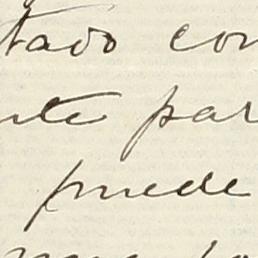 tado con
nte par
puede